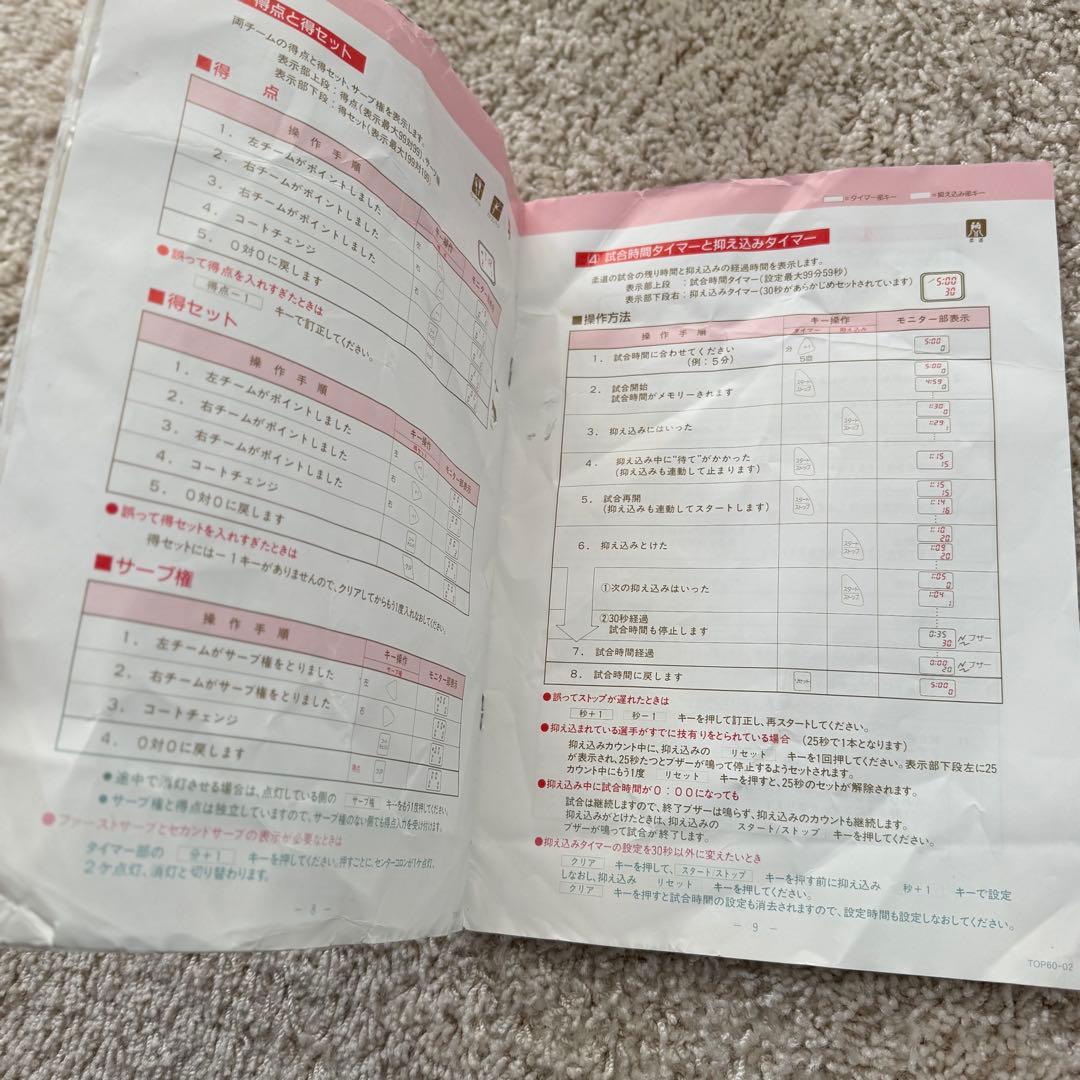 得点と得セット
両チームの得点と得セット、サーブ権を表示します。
表示部上段：得点(表示最大99対99)、サーブ権
表示部下段：得セット(表示最大199対199)
■得　点
操作手順
キー操作
モニター部表示
1． 左チームがポイントしました
左
2． 右チームがポイントしました
右
3． 右チームがポイントしました
右
4． コートチェンジ
5． 0対0に戻します
●誤って得点を入れすぎたときは
得点－1 キーで訂正してください。
■得セット
操作手順
キー操作
得セット
モニター部表示
1． 左チームがポイントしました
左
2． 右チームがポイントしました
右
3． 右チームがポイントしました
右
4． コートチェンジ
5． 0対0に戻します
●誤って得セットを入れすぎたときは
得セットには－1キーがありませんので、クリアしてからもう1度入れなおしてください。
■サーブ権
操作手順
キー操作
サーブ権
モニター部表示
1． 左チームがサーブ権をとりました
左
2． 右チームがサーブ権をとりました
右
3． コートチェンジ
4． 0対0に戻します
得点
クリア
●途中で消灯させる場合は、点灯している側の サーブ権 キーをもう1度押してください。
●サーブ権と得点は独立していますので、サーブ権のない側でも得点入力を受け付けます。
●ファーストサーブとセカンドサーブの表示が必要なときは
タイマー部の 分＋1 キーを押してください。押すごとに、センターコロンが1ケ点灯、
2ケ点灯、消灯と切り替わります。
－ 8 －
＝タイマー部キー ＝抑え込み部キー
柔道
④ 試合時間タイマーと抑え込みタイマー
柔道の試合の残り時間と抑え込みの経過時間を表示します。
表示部上段 ：試合時間タイマー(設定最大99分59秒)
表示部下段右：抑え込みタイマー(30秒があらかじめセットされています)
5:00
30
■操作方法
操作手順
キー操作
タイマー 抑え込み
モニター部表示
1． 試合時間に合わせてください
(例：5分)
分 +1
5回
5:00
0
2． 試合開始
試合時間がメモリーされます
スタート
ストップ
5:00
0
4:59
0
3． 抑え込みにはいった
スタート
ストップ
1:30
0
1:29
1
4． 抑え込み中に“待て”がかかった
(抑え込みも連動して止まります)
スタート
ストップ
1:15
15
5． 試合再開
(抑え込みも連動してスタートします)
スタート
ストップ
1:15
15
1:14
16
6． 抑え込みとけた
スタート
ストップ
1:10
20
1:09
20
①次の抑え込みはいった
スタート
ストップ
1:05
0
1:04
1
②30秒経過
試合時間も停止します
0:35
30
ブザー
7． 試合時間経過
0:00
20
ブザー
8． 試合時間に戻します
リセット
5:00
0
●誤ってストップが遅れたときは
秒＋1 秒－1 キーを押して訂正し、再スタートしてください。
●抑え込まれている選手がすでに技有りをとられている場合 (25秒で1本となります)
抑え込みカウント中に、抑え込みの リセット キーを1回押してください。表示部下段左に25
が表示され、25秒たつとブザーが鳴って停止するようセットされます。
カウント中にもう1度 リセット キーを押すと、25秒のセットが解除されます。
●抑え込み中に試合時間が0：00になっても
試合は継続しますので、終了ブザーは鳴らず、抑え込みのカウントも継続します。
抑え込みがとけたときは、抑え込みの スタート/ストップ キーを押してください。
ブザーが鳴って試合が終了します。
●抑え込みタイマーの設定を30秒以外に変えたいとき
クリア キーを押して、 スタート/ストップ キーを押す前に抑え込み 秒＋1 キーで設定
しなおし、抑え込み リセット キーを押してください。
クリア キーを押すと試合時間の設定も消去されますので、設定時間も設定しなおしてください。
－ 9 －
TOP60-02